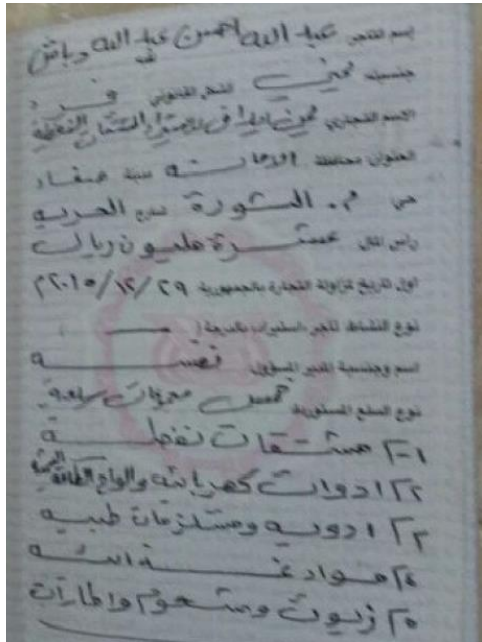 اسم التاجر عبد الله احسن عبد الله دباش
جنسيته يمني الشكل القانوني فرد
الاسم التجاري لاستيراد المشتقات النفطية
العنوان محافظة الامانة مدينة صنعاء
حي م. الثورة شارع الحريه
راس المال عشرة مليون ريال
اول تاريخ لمزاولة التجارة بالجمهورية ٢٩/١٢/٢٠١٥م
نوع النشاط تاجر استيراد بالدرجة (
اسم وجنسية المدير المسؤول نفسه
نوع السلع المستوردة خمس مجموعات سلعية
١-٢ مشتقات نفطية
٢٢ ادوات كهربائيه والواح الطاقة الشمسية
٢٣ ادويه ومستلزمات طبيه
٢٤ مواد غذائيه
٢٥ زيوت وشحوم واطارات